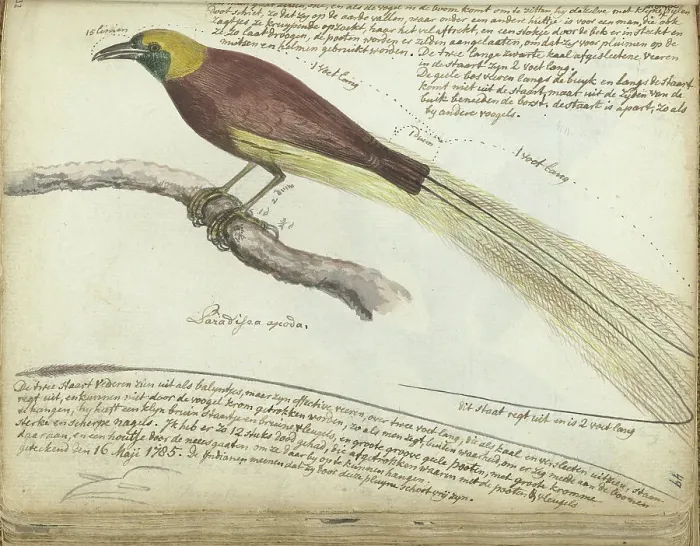 doorschiet, zo dat zy op de aarde vallen, waar onder een ander huitje is voor een man, die ook
zagtjes ze kruypende opzoekt, haar het vel aftrekt, en een stokje door de bek er in steekt en
ze zo laat droogen, de pooten worden er zelden aangelaaten, om dat zy voor pluimen op de
mutsen en helmen gebruikt worden. De twee lange zwarte kaal afgesleetene veeren
in de staart zyn 2 voet lang.
De geele bos veeren langs de buyk en langs de staart
komt niet uit de staart, maar uit de zyden van de
buik beneeden de borst. de staart is apart, zo als
by andere voogels.
15 linien
1 voet lang
7 duim
1 voet lang
2 duim
Paradisea apoda.
dit staat regt uit en is 2 voet lang
De twee staart vederen zien uit als balyntjes, maar zyn effective veeren, over twee voet lang, die als kaal en versleeten uitzien, staan
regt uit, en kunnen niet door de voogel krom getrokken worden, zo als men zegt, buiten waarheid, om er zig meede aan de boomen
te hangen, hy heeft een klyn bruin staartje en bruine vleugels, en groote grove geele pooten, met groote kromme
sterke en scherpe nagels. Ik heb er zo 12 stuks dood gehad, die afgetrokken waaren met de pooten & vleugels
daar aan, en een houtje door de neusgaaten, om ze daar by op te kunnen hangen.
getekend den 16 Maji 1785. De Indianen meenen dat zy door deeze pluym schootvry zyn.